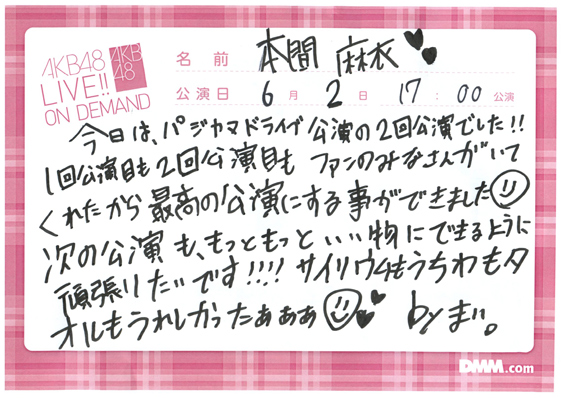 AKB48
LIVE!!
ON DEMAND
AKB
48
名前 本間 麻衣
公演日 6月2日 17:00公演
今日は、パジャマドライブ公演の2回公演でした!!
1回公演目も2回公演目も ファンのみなさんがいて
くれたから最高の公演にする事ができました
次の公演も、もっともっといい物にできるように
頑張りたいです!!!! サイリウムもうちわもタ
オルもうれしかったぁぁぁ by まい。
DMM.com